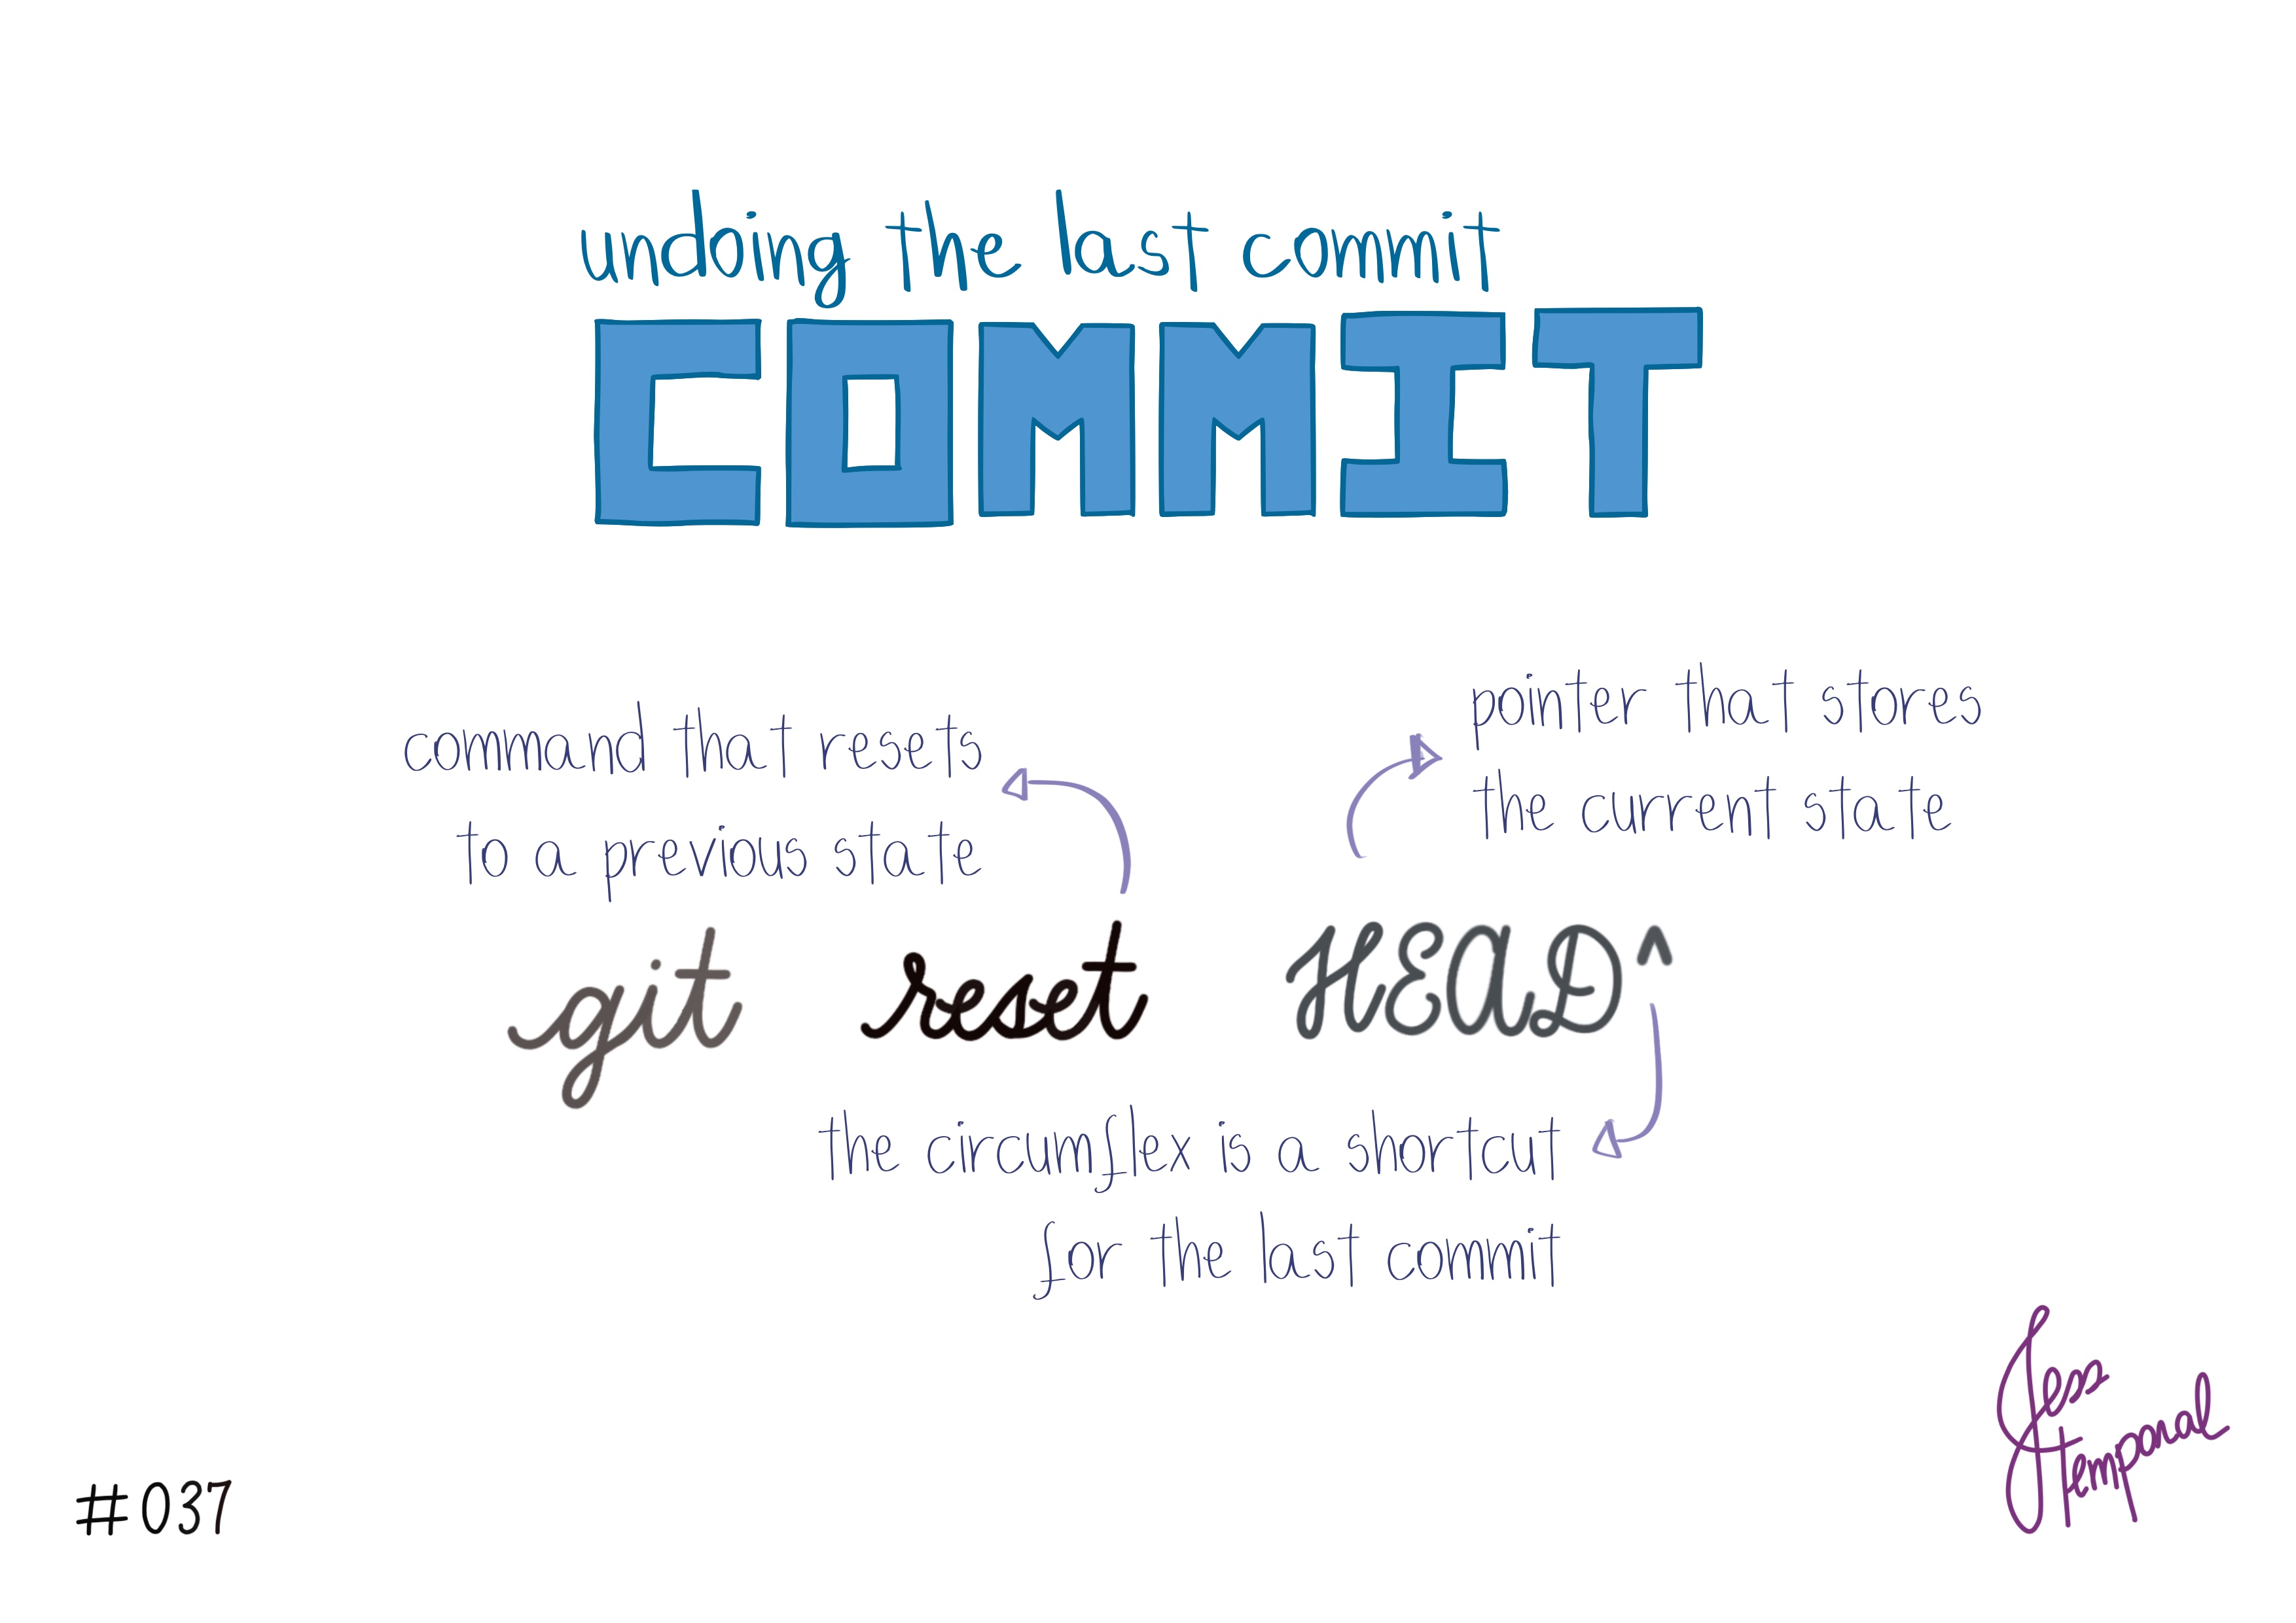 undoing the last commit
COMMIT
command that resets
to a previous state
pointer that stores
the current state
git reset HEAD^
the circumflex is a shortcut
for the last commit
Jess
temporal
#037